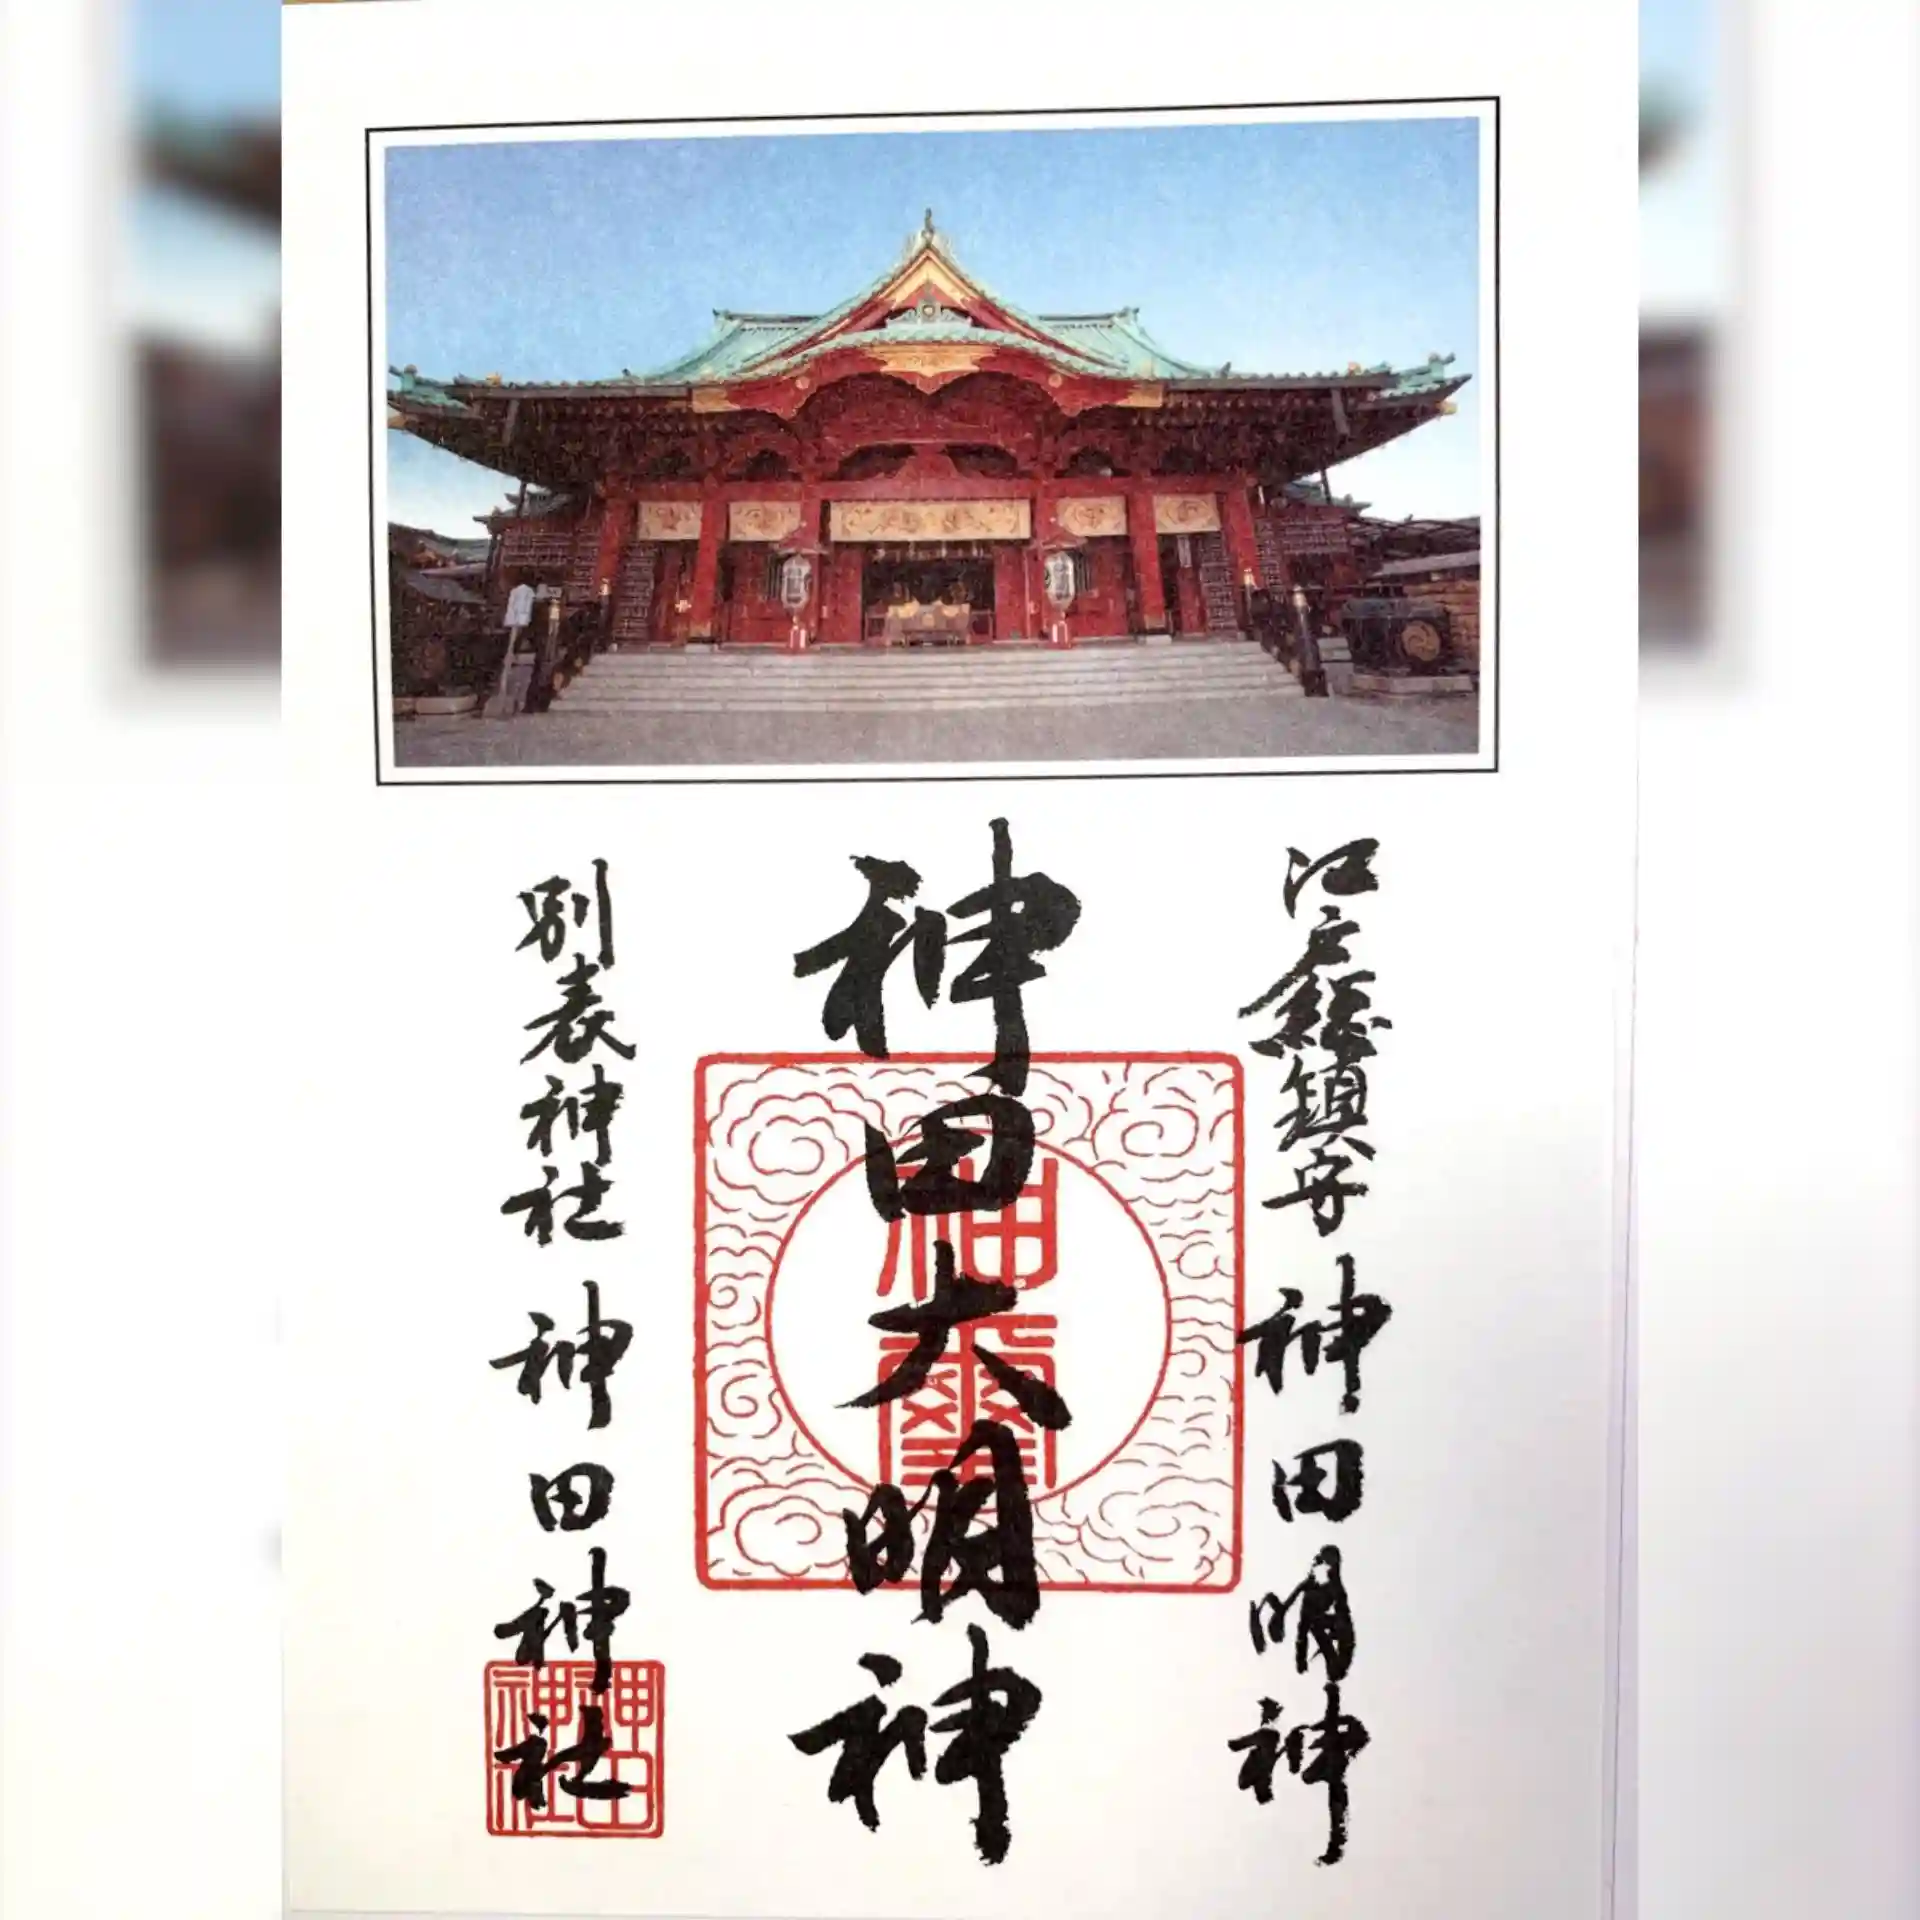 江戸總鎮守 神田明神
神田大明神
神璽
別表神社 神田神社
神田
神社